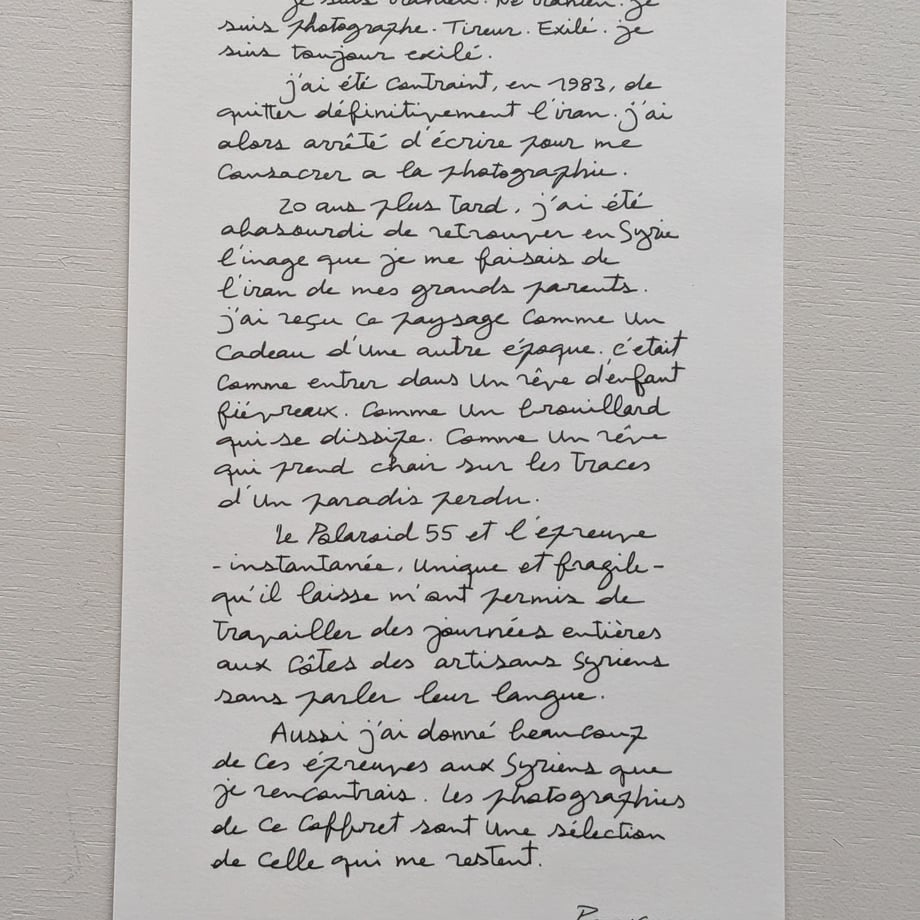 je suis iranien. Né iranien. je
suis photographe. Tireur. Exilé. je
suis toujour exilé.
j'ai été contraint, en 1983, de
quitter définitivement l'iran. j'ai
alors arrêté d'écrire pour me
consacrer a la photographie.
20 ans plus tard, j'ai été
abasourdi de retrouver en Syrie
l'image que je me faisais de
l'iran de mes grands parents.
j'ai reçu ce paysage comme un
cadeau d'une autre époque. c'etait
comme entrer dans un rêve d'enfant
fiévreux. Comme un brouillard
qui se dissipe. Comme un rêve
qui prend chair sur les traces
d'un paradis perdu.
Le Polaroid 55 et l'épreuve
- instantanée, unique et fragile -
qu'il laisse m'ont permis de
travailler des journées entières
aux côtes des artisans Syriens
sans parler leur langue.
Aussi j'ai donné beaucoup
de ces épreuves aux Syriens que
je rencontrais. Les photographies
de ce coffret sont une sélection
de celle qui me restent.